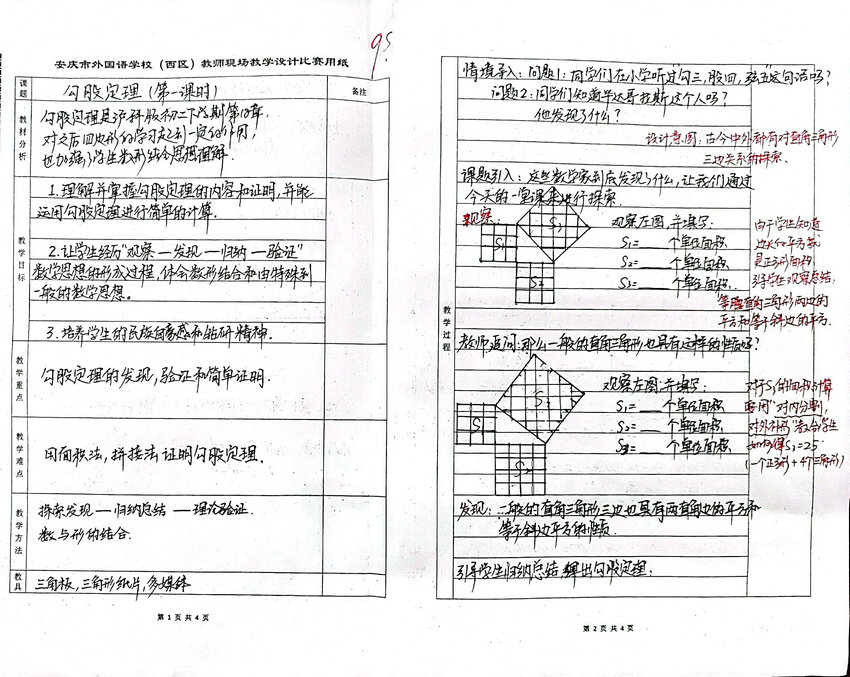 95
安庆市外国语学校（西区）教师现场教学设计比赛用纸
课题
勾股定理（第一课时）
备注
教材分析
勾股定理是沪科版初二下学期第18章,
对之后四边形的学习起到一定的作用,
也加强了学生数形结合思想理解.
教学目标
1.理解并掌握勾股定理的内容和证明,并能
运用勾股定理进行简单的计算.
2.让学生经历"观察—发现—归纳—验证"
数学思想的形成过程,体会数形结合和由特殊到
一般的数学思想。
3.培养学生的民族自豪感和钻研精神.
教学重点
勾股定理的发现,验证和简单证明.
教学难点
用面积法,拼接法证明勾股定理.
教学方法
探索发现—归纳总结—理论验证.
数与形的结合.
教具
三角板,三角形纸片,多媒体
第 1 页 共 4 页
教学过程
情境导入：问题1：同学们在小学听过"勾三,股四,弦五"这句话吗?
问题2：同学们知道毕达哥拉斯这个人吗?
他发现了什么?
设计意图：古今中外都有对直角三角形
三边关系的探索.
课题引入：这些数学家到底发现了什么,让我们通过
今天的一堂课来进行探索.
观察：
S₃
S₁
S₂
观察左图,并填写：
S₁=___ 个单位面积
S₂=___ 个单位面积
S₃=___ 个单位面积.
由于学生知道
边长的平方就
是正方形面积.
引导学生观察总结:
等腰直角三角形两边的
平方和等于斜边的平方.
教师追问:那么一般的直角三角形也具有这样的性质吗?
S₃
S₁
S₂
观察左图,并填写：
S₁=___ 个单位面积
S₂=___ 个单位面积
S₃=___ 个单位面积.
对于S₃的面积计算
要用"对内分割,
对外补形"教会学生
如何得S₃=25
(一个正方形+4个三角形)
发现：一般的直角三角形三边也具有两直角边的平方和
等于斜边平方的性质.
引导学生归纳总结,得出勾股定理：
第 2 页 共 4 页